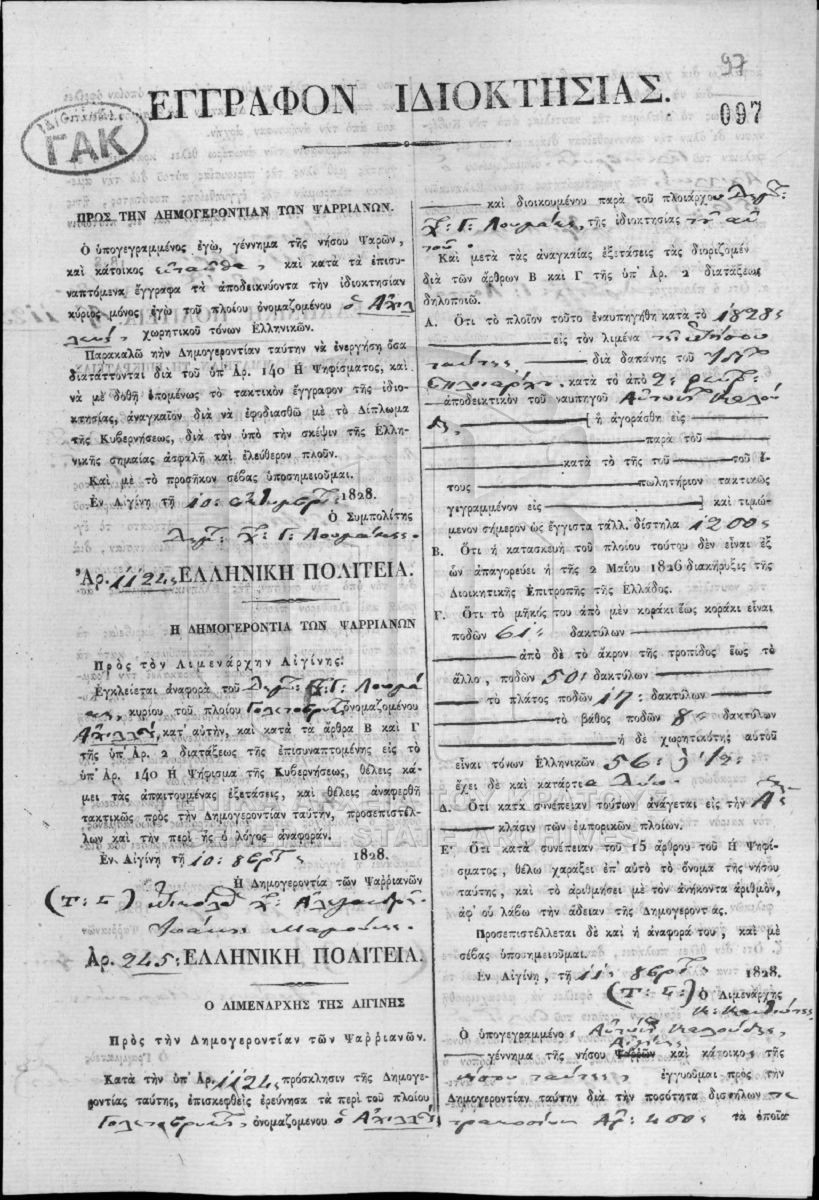 97
ΕΓΓΡΑΦΟΝ ΙΔΙΟΚΤΗΣΙΑΣ.
097
ΓΑΚ
ΠΡΟΣ ΤΗΝ ΔΗΜΟΓΕΡΟΝΤΙΑΝ ΤΩΝ ΨΑΡΡΙΑΝΩΝ.
Ὁ ὑπογεγραμμένος ἐγὼ, γέννημα τῆς νήσου Ψαρῶν,
καὶ κάτοικος ἐνταῦθα, καὶ κατὰ τὰ ἐπισυ-
ναπτόμενα ἔγγραφα τὰ ἀποδεικνύοντα τὴν ἰδιοκτησίαν
κύριος μόνος ἐγὼ τοῦ πλοίου ὀνομαζομένου ὁ Ἀχιλ
λεὺς, χωρητικοῦ τόνων Ἑλληνικῶν.
Παρακαλῶ τὴν Δημογεροντίαν ταύτην νὰ ἐνεργήσῃ ὅσα
διατάττονται διὰ τοῦ ὑπ' Ἀρ. 140 Η Ψηφίσματος, καὶ
νὰ μὲ δοθῇ ἑπομένως τὸ τακτικὸν ἔγγραφον τῆς ἰδιο-
κτησίας, ἀναγκαῖον διὰ νὰ ἐφοδιασθῶ μὲ τὸ Δίπλωμα
τῆς Κυβερνήσεως, διὰ τὸν ὑπὸ τὴν σκέψιν τῆς Ἑλλη-
νικῆς σημαίας ἀσφαλῆ καὶ ἐλεύθερον πλοῦν.
Καὶ μὲ τὸ προσῆκον σέβας ὑποσημειοῦμαι.
Ἐν Αἰγίνῃ τῇ 10: 1828.
Ὁ Συμπολίτης
Δημ: Χ: Γ: Λουμάκης.
Ἀρ. 1124, ΕΛΛΗΝΙΚΗ ΠΟΛΙΤΕΙΑ.
Η ΔΗΜΟΓΕΡΟΝΤΙΑ ΤΩΝ ΨΑΡΡΙΑΝΩΝ
Πρὸς τὸν Λιμενάρχην Αἰγίνης.
Ἐγκλείεται ἀναφορὰ τοῦ Δημ: Χ: Γ: Λουμά
κη, κυρίου τοῦ πλοίου Γολεταβρὶκ ὀνομαζομένου
Ἀχιλλεὺ, κατ' αὐτὴν, καὶ κατὰ τὰ ἄρθρα Β καὶ Γ
τῆς ὑπ' Ἀρ. 2 διατάξεως τῆς ἐπισυναπτομένης εἰς τὸ
ὑπ' Ἀρ. 140 Η Ψήφισμα τῆς Κυβερνήσεως, θέλεις κά-
μει τὰς ἀπαιτουμένας ἐξετάσεις, καὶ θέλεις ἀναφερθῆ
τακτικῶς πρὸς τὴν Δημογεροντίαν ταύτην, προσεπιστέλ-
λων καὶ τὴν περὶ ἧς ὁ λόγος ἀναφοράν.
Ἐν Αἰγίνῃ τῇ 10: 8βρ 1828.
Ἡ Δημογεροντία τῶν Ψαῤῥιανῶν
(Τ: Σ:) Νικολο Χ: Ἀλεξανδρῆ
Ἰωάνης
Ἀρ. 245: ΕΛΛΗΝΙΚΗ ΠΟΛΙΤΕΙΑ.
Ο ΛΙΜΕΝΑΡΧΗΣ ΤΗΣ ΑΙΓΙΝΗΣ
Πρὸς τὴν Δημογεροντίαν τῶν Ψαῤῥιανῶν.
Κατὰ τὴν ὑπ' Ἀρ. 1124 πρόσκλησιν τῆς Δημογε-
ροντίας ταύτης, ἐπισκεφθεὶς ἐρεύνησα τὰ περὶ τοῦ πλοίου
Γολεταβρὶκ, ὀνομαζομένου ὁ Ἀχιλλεὺ
καὶ διοικουμένου παρὰ τοῦ πλοιάρχου Δημ:
Χ: Γ: Λουμάκη, τῆς ἰδιοκτησίας τοῦ αὐ
τοῦ.
Καὶ μετὰ τὰς ἀναγκαίας ἐξετάσεις τὰς διοριζομέν
διὰ τῶν ἄρθρων Β καὶ Γ τῆς ὑπ' Ἀρ. 2 διατάξεως
δηλοποιῶ.
Α. Ὅτι τὸ πλοῖον τοῦτο ἐναυπηγήθη κατὰ τὸ 1828
εἰς τὸν λιμένα τῆς νήσου
ταύτης διὰ δαπάνης τοῦ
πλοιάρχου, κατὰ τὸ ἀπὸ 2:
ἀποδεικτικὸν τοῦ ναυπηγοῦ Ἀντωνι Καλού
δη, ἢ ἀγοράσθη εἰς
παρὰ τοῦ
κατὰ τὸ τῆς τοῦ τοῦ ἔ-
τους πωλητήριον τακτικῶς
γεγραμμένον εἰς καὶ τιμώ-
μενον σήμερον ὡς ἔγγιστα τάλλ. δίστηλα 1200
Β. Ὅτι ἡ κατασκευὴ τοῦ πλοίου τούτου δὲν εἶναι ἐξ
ὧν ἀπαγορεύει ἡ τῆς 2 Μαΐου 1826 διακήρυξις τῆς
Διοικητικῆς Ἐπιτροπῆς τῆς Ἑλλάδος.
Γ. Ὅτι τὸ μῆκός του ἀπὸ μὲν κοράκι ἕως κοράκι εἶναι
ποδῶν 61: δακτύλων
ἀπὸ δὲ τὸ ἄκρον τῆς τροπίδος ἕως τὸ
ἄλλο, ποδῶν 50: δακτύλων
τὸ πλάτος ποδῶν 17: δακτύλων
τὸ βάθος ποδῶν 8: δακτύλων
ἡ δὲ χωρητικότης αὐτοῦ
εἶναι τόνων Ἑλληνικῶν 56: 1/2:
ἔχει δὲ καὶ κατάρτια δύο.
Δ. Ὅτι κατὰ συνέπειαν τούτων ἀνάγεται εἰς τὴν Α
κλάσιν τῶν ἐμπορικῶν πλοίων.
Ε. Ὅτι κατὰ συνέπειαν τοῦ 15 ἄρθρου τοῦ Η Ψηφί-
σματος, θέλω χαράξει ἐπ' αὐτὸ τὸ ὄνομα τῆς νήσου
ταύτης, καὶ τὸ ἀριθμήσει μὲ τὸν ἀνήκοντα ἀριθμὸν,
ἀφ' οὗ λάβω τὴν ἄδειαν τῆς Δημογεροντίας.
Προσεπιστέλλεται δὲ καὶ ἡ ἀναφορά του, καὶ μὲ
σέβας ὑποσημειοῦμαι.
Ἐν Αἰγίνῃ, τῇ 11: 8βρ 1828.
(Τ: Σ:) Ὁ Λιμενάρχης
Ὁ ὑπογεγραμμένος Ἀντωνι Καλούδης,
Αἰγίνης
γέννημα τῆς νήσου Ψαῤῥῶν καὶ κάτοικος τῆς
νήσου ταύτης, ἐγγυοῦμαι πρὸς τὴν
Δημογεροντίαν ταύτην διὰ τὴν ποσότητα διστήλων τε
τρακοσίων Ἀρ: 400: τὰ ὁποῖα